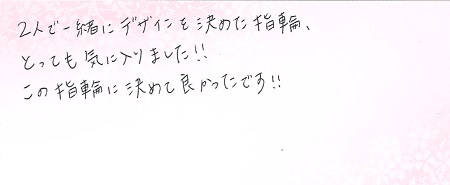 2人で一緒にデザインを決めた指輪、
とっても気に入りました!!
この指輪に決めて良かったです!!